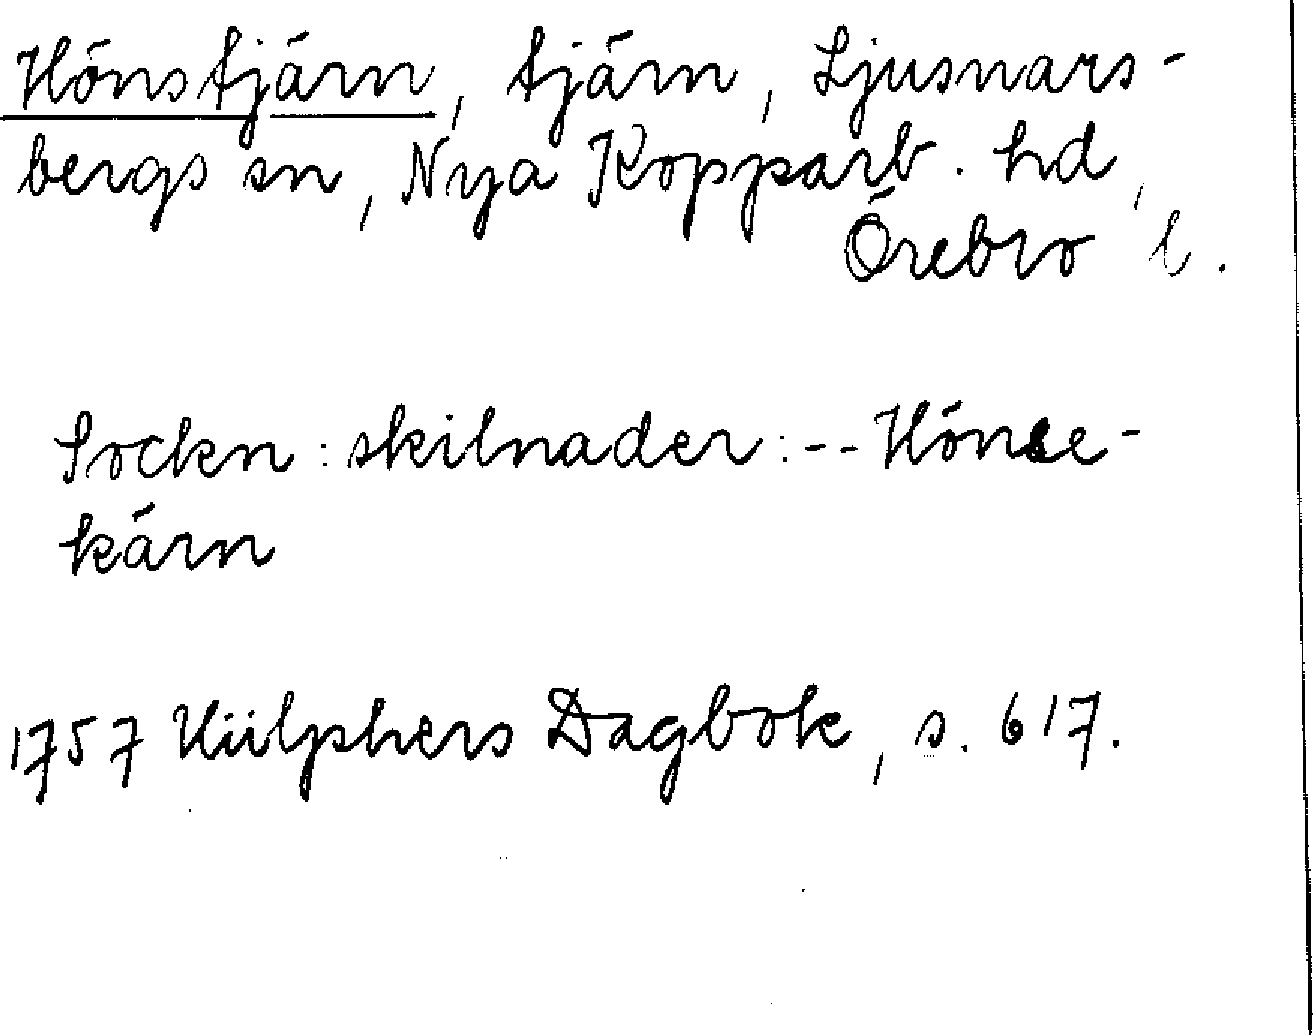 Hönstjärn, tjärn, Ljusnars-
bergs sn, Nya Kopparb. hd,
Örebro l.
Sockn: skilnader: -- Hönse-
kärn
1757 Hülphers Dagbok, s. 617.